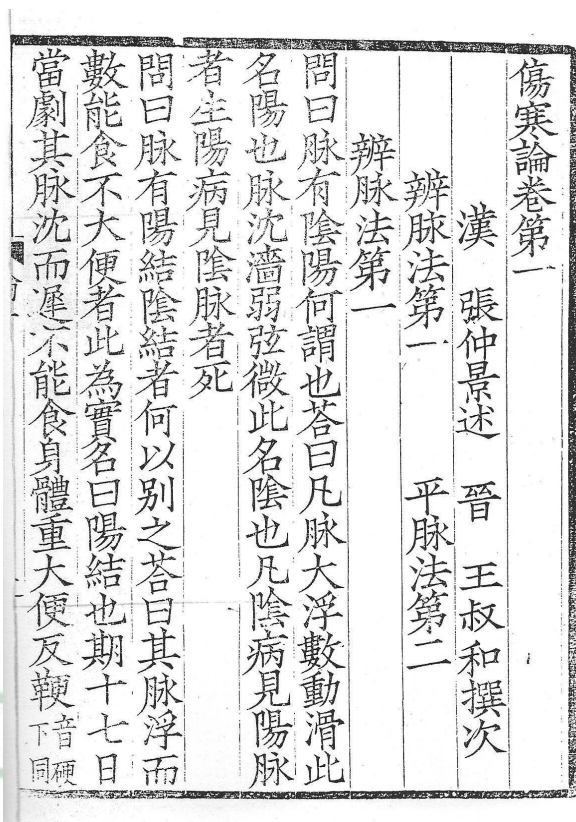 傷寒論卷第一
漢 張仲景述 晉 王叔和撰次
辨脉法第一 平脉法第二
辨脉法第一
問曰脉有陰陽何謂也荅曰凡脉大浮數動滑此
名陽也脉沈濇弱弦微此名陰也凡陰病見陽脉
者生陽病見陰脉者死
問曰脉有陽結陰結者何以别之荅曰其脉浮而
數能食不大便者此為實名曰陽結也期十七日
當劇其脉沈而遲不能食身體重大便反鞕音硬下同